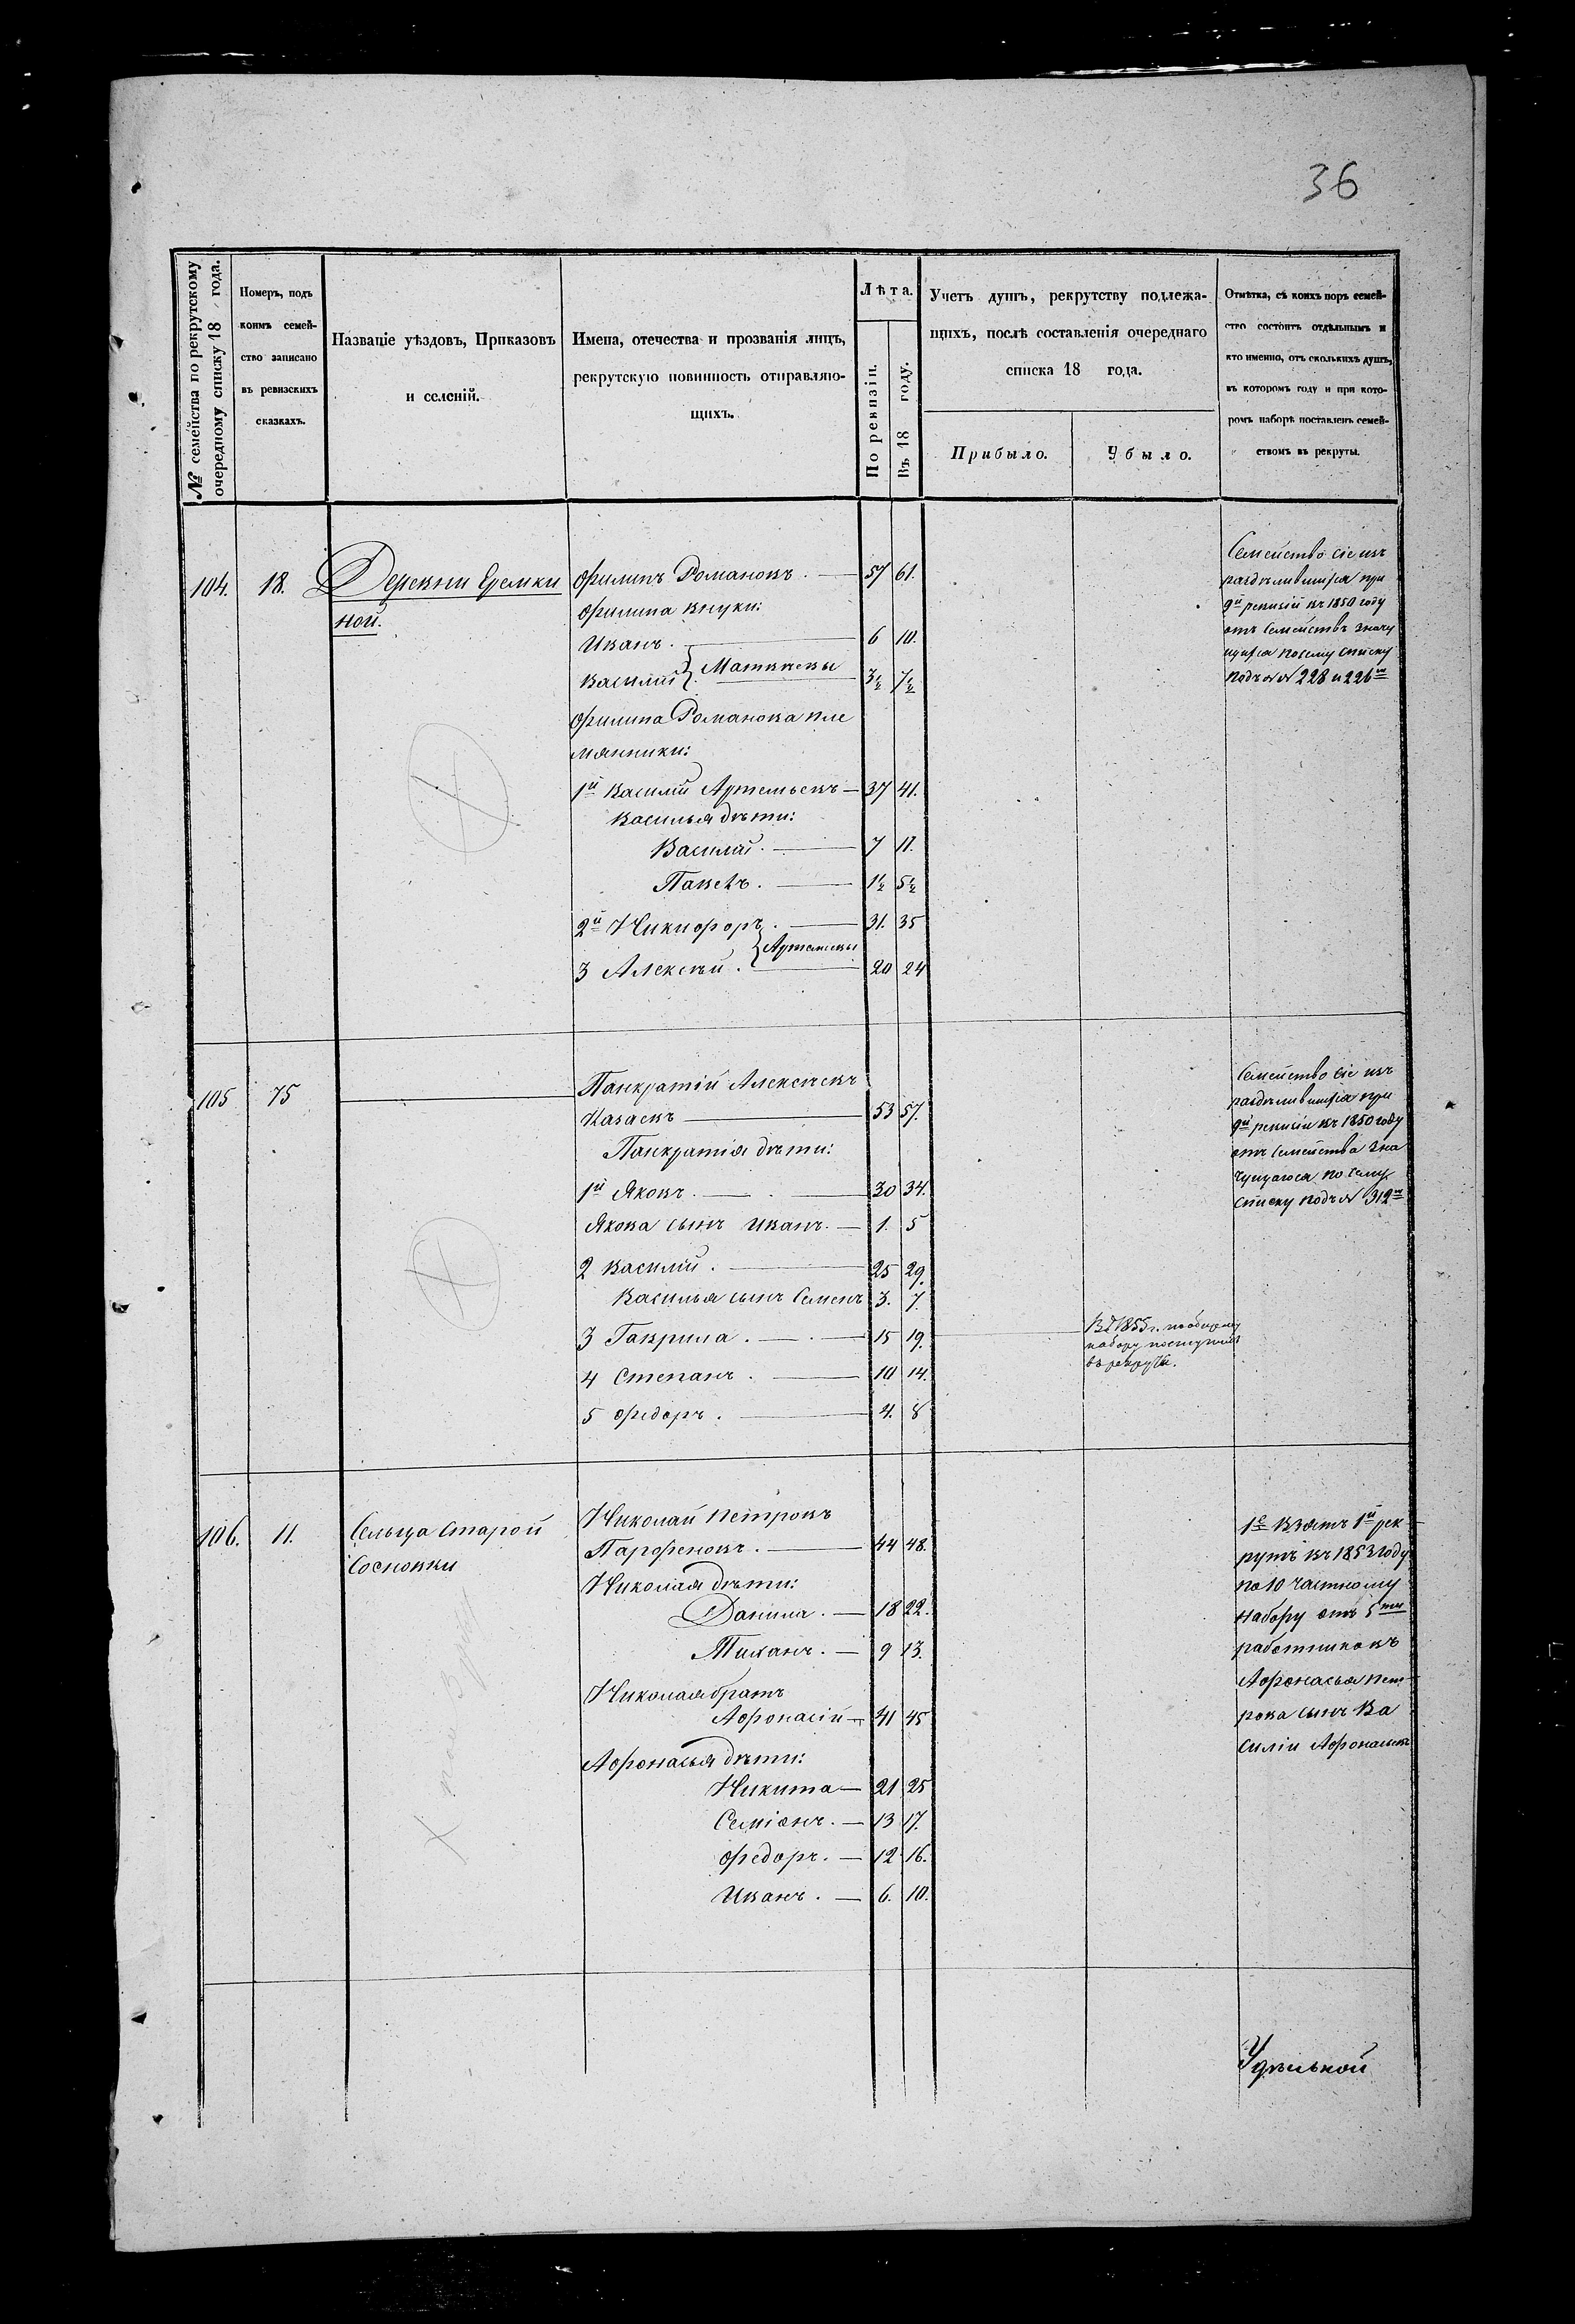 36
№ семейства по рекрутскому
очередному списку 18 года.
Номеръ, подъ
коимъ семей-
ство записано
въ ревизскихъ
сказкахъ.
Названіе уѣздовъ, Приказовъ
и селеній.
Имена, отечества и прозванія лицъ,
рекрутскую повинность отправляю-
щихъ.
Лѣта.
По ревизіи.
Въ 18 году.
Учетъ душъ, рекрутству подлежа-
щихъ, послѣ составленія очереднаго
списка 18 года.
Прибыло.
Убыло.
Отмѣтка, съ коихъ поръ семей-
ство состоитъ отдѣльнымъ и
кто именно, отъ сколькихъ душъ,
въ которомъ году и при кото-
ромъ наборѣ поставленъ семей-
ствомъ въ рекруты.
104. 18. Деревни Еремки
ной.
Филипъ Романовъ. 57 61.
Филипа внуки:
Иванъ. 6 10.
Василій } Матвѣевы 3½ 7½
Филипа Романова пле
мянники:
1й Василій Артемьевъ 37 41.
Василья дѣти:
Василій. 7 11.
Павелъ. 1½ 5½
2й Никифоръ. 31. 35
} Артемьевы
3 Алексѣй. 20 24
Семейство сіе изъ
раздѣлившихся при
9й ревизіи въ 1850 году
отъ семействъ значу
щихся по сему списку
подъ №№ 228 и 226м
105 75
Панкратій Алексѣевъ
Казаевъ 53 57.
Панкратія дѣти:
1й Яковъ. 30 34.
Якова сынъ Иванъ. 1. 5
2 Василій. 25 29.
Василья сынъ Семенъ 3. 7.
3 Гаврила. 15 19.
4 Степанъ. 10 14.
5 Федоръ. 4. 8
Въ 1855 г. по общему
набору поступилъ
въ рекруты.
Семейство сіе изъ
раздѣлившихся при
9й ревизіи въ 1850 году
отъ семейства зна
чущагося по сему
списку подъ № 312м
106. 11. Сельца Старой
Сосновки
Николай Петровъ
Парфеновъ. 44 48.
Николая дѣти:
Данила. 18 22.
Тиханъ. 9 13.
Николая братъ
Афонасій 41 45
Афонасья дѣти:
Никита 21 25
Семіонъ. 13 17.
Федоръ. 12 16.
Иванъ. 6. 10.
1е Взятъ 1й рек
рутъ въ 1853 году
по 10 частному
набору отъ 5ти
работниковъ
Афонасья Пет
рова сынъ Ва
силій Афонасьевъ
Удѣльной